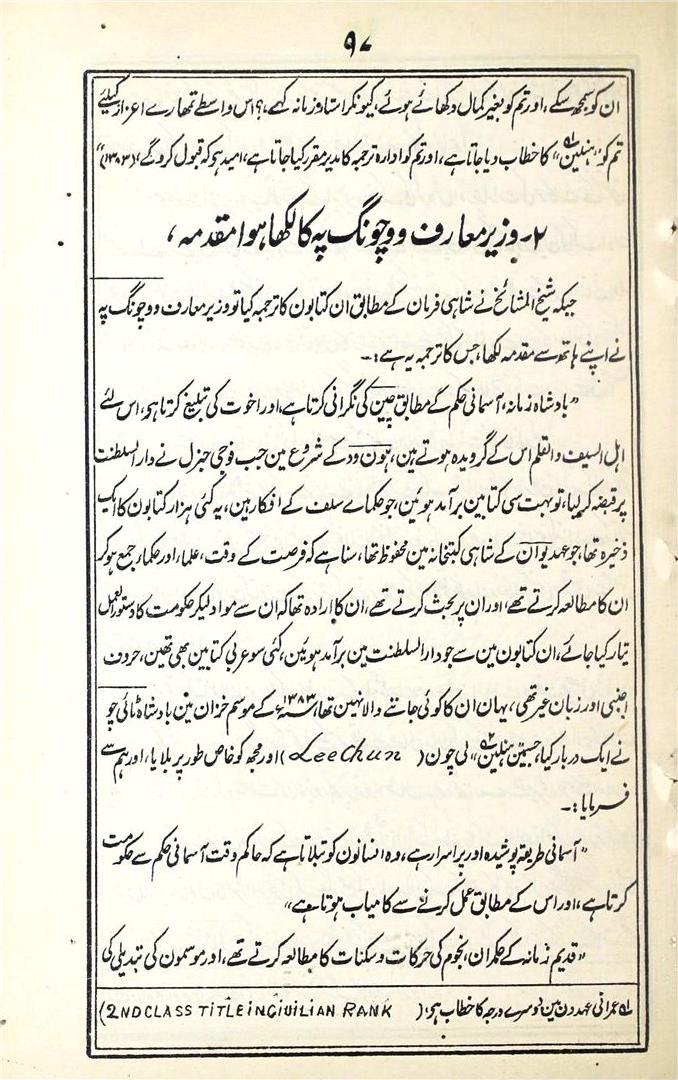 ۹۷
ان کو سمجھ سکے، اور تم کو بغیر کمال دکھائے ہوئے، کیونکر استاد زمانہ کہے،؟ اس واسطے تمھارے اعزاز کیلئے
تم کو "ہنلین"لہ کا خطاب دیا جاتا ہے، اور تم کو ادارہ ترجمہ کا مدیر مقرر کیا جاتا ہے، امید ہے کہ قبول کرو گے، (۱۳۸۳)"
۲- وزیر معارف ووچونگ پہ کا لکھا ہوا مقدمہ،
جبکہ شیخ المشائخ نے شاہی فرمان کے مطابق ان کتابون کا ترجمہ کیا تو وزیر معارف ووچونگ پہ
نے اپنے ہاتھ سے مقدمہ لکھا، جس کا ترجمہ یہ ہے:۔
"بادشاہ زمانہ، آسمانی حکم کے مطابق چین کی نگرانی کرتا ہے، اور اخوت کی تبلیغ کرتا ہی، اس لئے
اہل السیف والقلم اس کے گرویدہ ہوتے ہین، ہون ود کے شروع مین جب فوجی جنرل نے دار السلطنت
پر قبضہ کر لیا، تو بہت سی کتابین برآمد ہوئین، جو حکماے سلف کے افکار ہین، یہ کئی ہزار کتابون کا ایک
ذخیرہ تھا، جو عہد یوان کے شاہی کتبخانہ مین محفوظ تھا، سنا ہے کہ فرصت کے وقت، علماء اور حکما، جمع ہو کر
ان کا مطالعہ کرتے تھے، اور ان پر بحث کرتے تھے، ان کا ارادہ تھا کہ ان سے مواد لیکر حکومت کا دستور العمل
تیار کیا جائے، ان کتابون مین سے جو دار السلطنت مین برآمد ہوئین، کئی سو عربی کتابین بھی تھین، حروف
اجنبی اور زبان غیر تھی، یہان ان کا کوئی جاننے والا نہین تھا، ۱۳۸۳ء کے موسم خزان مین بادشاہ ٹائی چو
نے ایک دربار کیا، جسمین ہنلین"لہ لی چون (Lee Chun) اور مجھ کو خاص طور پر بلایا، اور ہم سے
فرمایا:۔
"آسمانی طریقہ پوشیدہ اور پراسرار ہے، وہ انسانون کو بتلاتا ہے کہ حاکم وقت آسمانی حکم سے حکومت
کرتا ہے، اور اس کے مطابق عمل کرنے سے کامیاب ہوتا ہے"
"قدیم زمانہ کے حکمران، نجوم کی حرکات و سکنات کا مطالعہ کرتے تھے، اور موسمون کی تبدیلی کی
لہ عمرانی عہدون مین دوسرے درجہ کا خطاب ہی؛ (2ND CLASS TITLE IN CIUILIAN RANK)